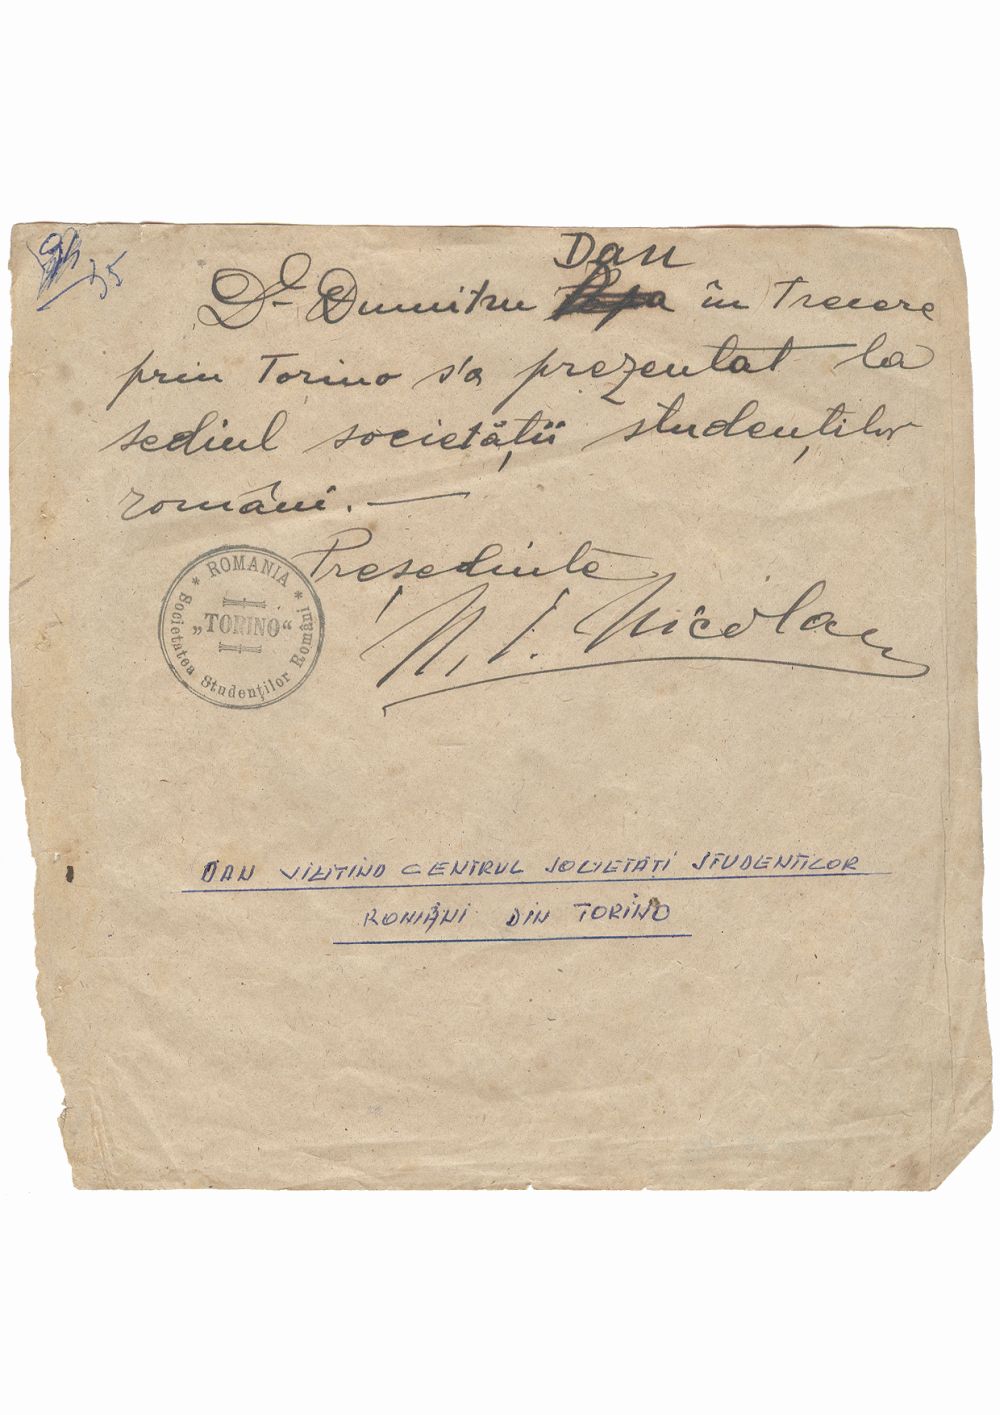 35
Dan
Dl Dumitru Popa în trecere
prin Torino s'a prezentat la
sediul societății studenților
români. —
Președinte
N. I. Nicolau
* ROMANIA *
„TORINO“
Societatea Studenților Români
DAN VIZITIND CENTRUL SOCIETĂȚI STUDENTILOR
ROMÂNI DIN TORINO